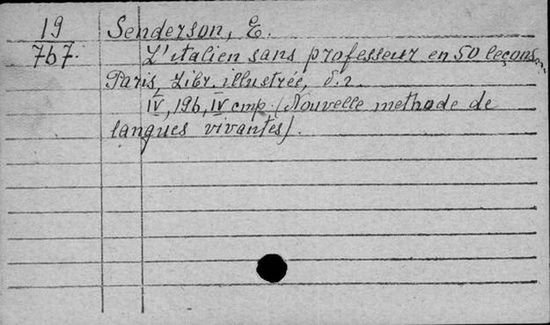 19 Senderson, E.
767. L'italien sans professeur en 50 leçons.
Paris, Libr. illustrée, s.
IV, 196, IV cmp. (Nouvelle methode de
langues vivantes).